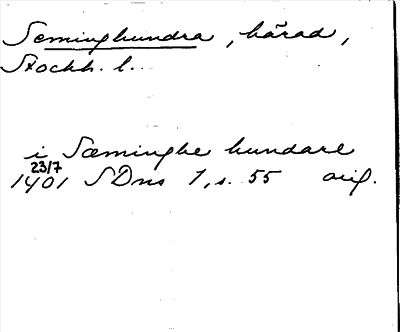 Seminghundra, härad,
Stockh. l.
i Sæmingbe hundare
23/7
1401 SDns 1, s. 55 orig.